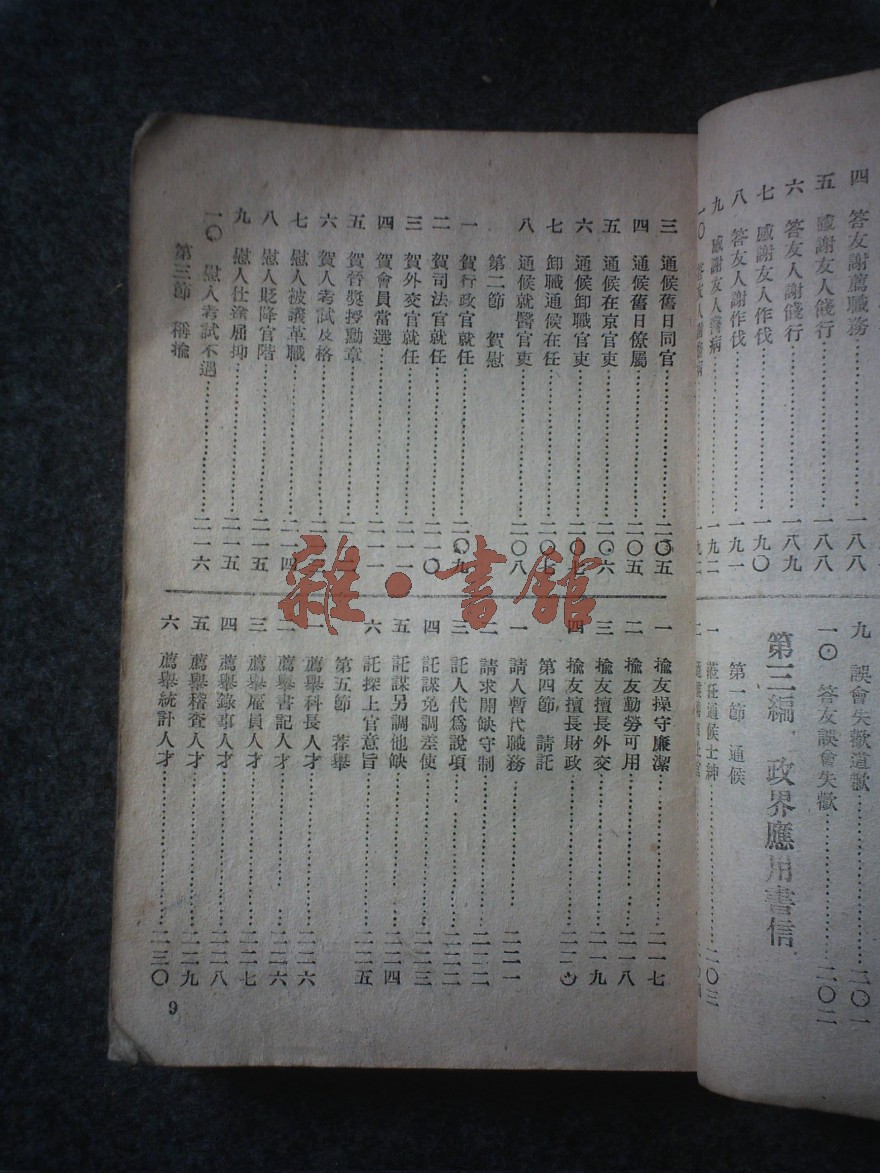 四 答友謝薦職務……一八八
五 感謝友人餞行……一八八
六 答友人謝餞行……一八九
七 感謝友人作伐……一九〇
八 答友人謝作伐……一九一
九 感謝友人醫病……一九二
一〇
九 誤會失歡道歉……二〇一
一〇 答友誤會失歡……二〇二
第三編 政界應用書信
第一節 通候
一 蒞任通候士紳……二〇三
二
三 通候舊日同官……二〇五
四 通候舊日僚屬……二〇五
五 通候在京官吏……二〇六
六 通候卸職官吏……二〇七
七 卸職通候在任……二〇七
八 通候就醫官吏……二〇八
第二節 賀慰
一 賀行政官就任……二〇九
二 賀司法官就任……二一〇
三 賀外交官就任……二一一
四 賀會員當選……二一一
五 賀晉獎授勳章……二一
六 賀人考試及格……二一
七 慰人被議革職……二一四
八 慰人貶降官階……二一五
九 慰人仕途屈抑……二一五
一〇 慰人考試不遇……二一六
第三節 稱揄
一 揄友操守廉潔……二一七
二 揄友勤勞可用……二一八
三 揄友擅長外交……二一九
四 揄友擅長財政……二二〇
第四節 請託
一 請人暫代職務……二二一
二 請求開缺守制……二二二
三 託人代為說項……二二二
四 託謀免調差使……二二三
五 託謀另調他缺……二二四
六 託探上官意旨……二二五
第五節 荐舉
一 薦舉科長人才……二二六
二 薦舉書記人才……二二六
三 薦舉雇員人才……二二七
四 薦舉錄事人才……二二八
五 薦舉稽查人才……二二九
六 薦舉統計人才……二三〇
9
雜·書館